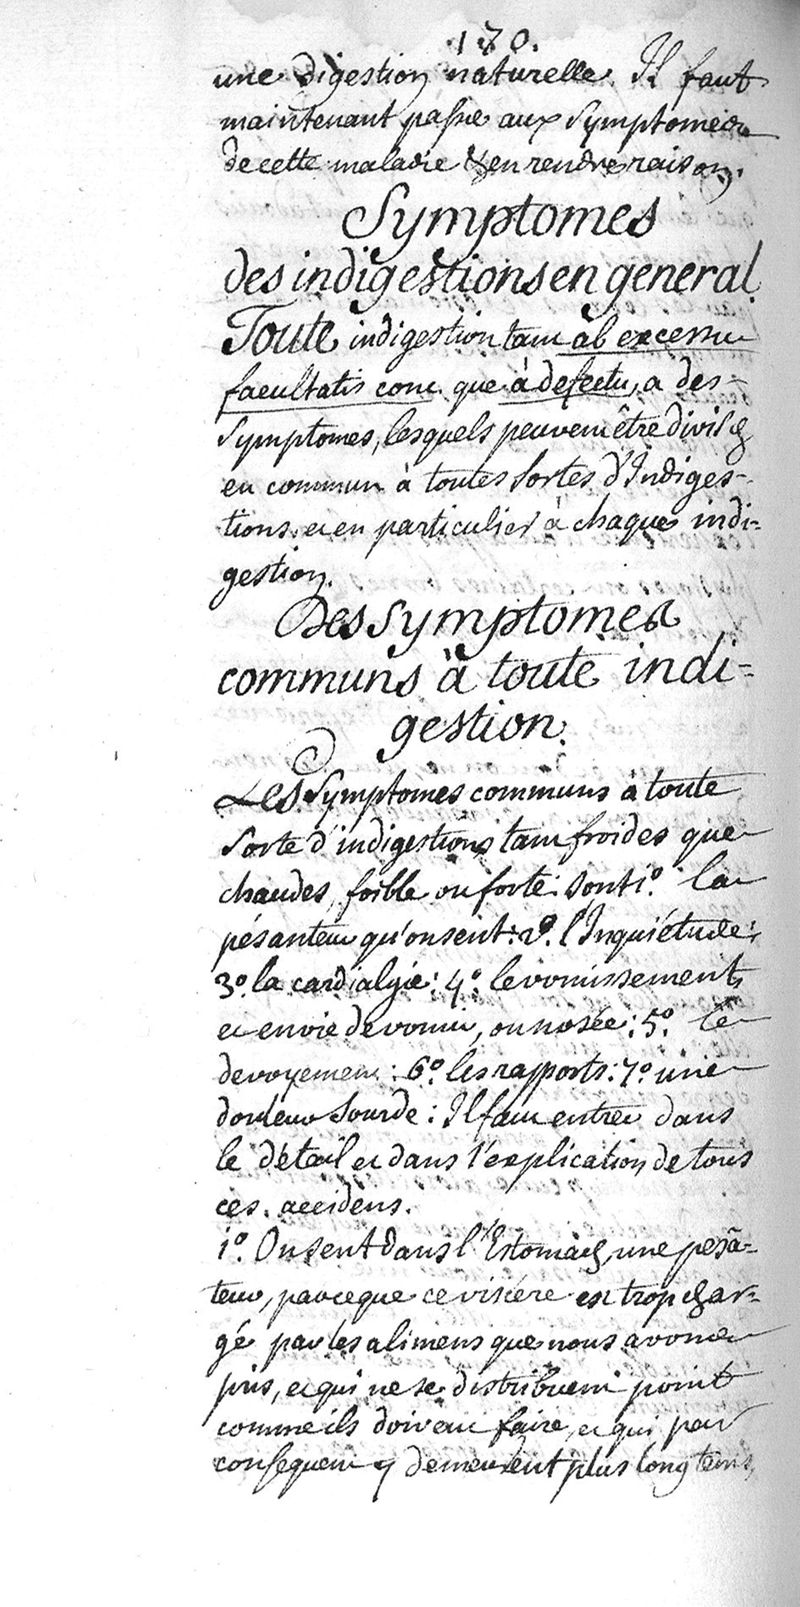 170.
une digestion naturelle. Il faut
maintenant passer aux Symptomes
de cette maladie & en rendre raison.
Symptomes
des indigestions en general.
Toute indigestion tant ab excessu
facultatis conc. que à defectu, a des
Symptomes, lesquels peuvent être divisés
en commun à toutes sortes d'Indiges-
tions et en particulier à chaque indi=
gestion.
Des Symptomes
communs à toute indi=
gestion.
Les Symptomes communs à toute
Sorte d'indigestions tant froides que
chaudes, foible ou forte: Sont 1º. la
pésanteur qu'on sent: 2º. l'Inquiétude:
3º la cardialgie: 4º. le vomissement
et envie de vomir, ou nosée: 5º. le
devoyement: 6º. les rapports: 7º. une
douleur Sourde: Il faut entrer dans
le détail et dans l'explication de tous
ces accidens.
1º. On sent dans l'Estomach, une pesã=
teur, parceque ce viscere est trop char=
gé par les alimens que nous avons
pris, et qui ne se distribuent point
comme ils doivent faire, et qui par
consequent y demeurent plus long tems,